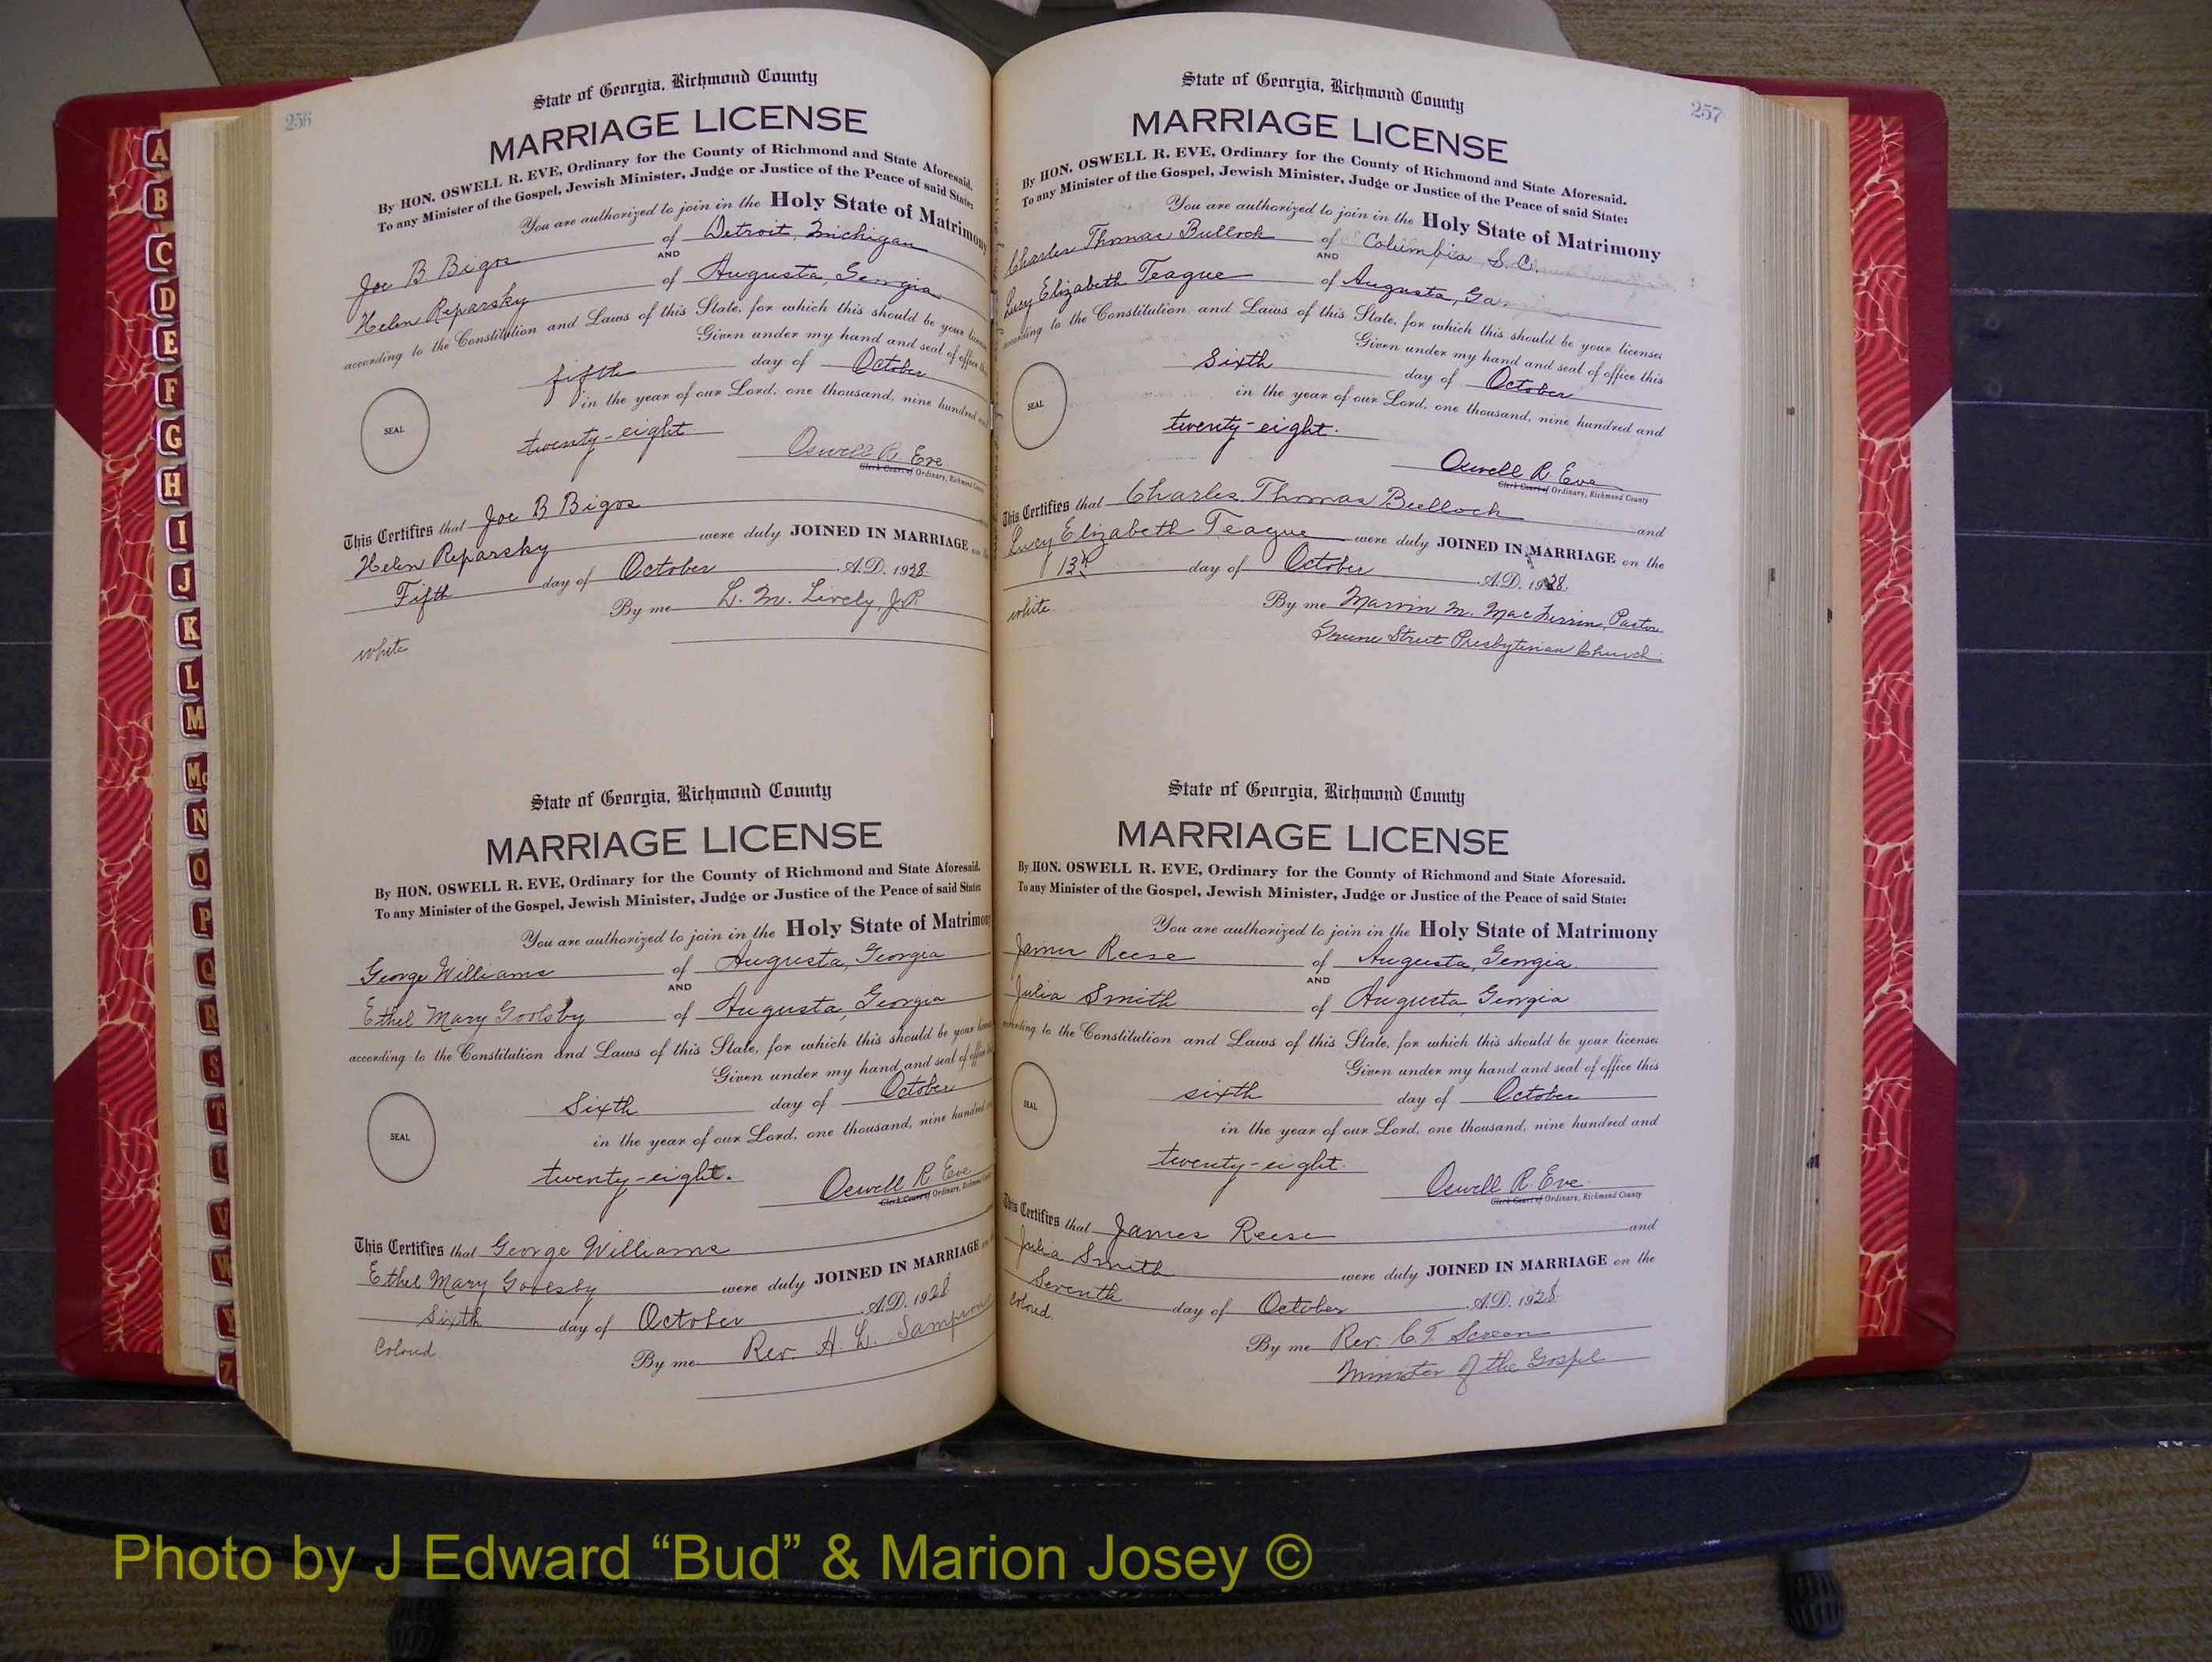 256
State of Georgia, Richmond County
MARRIAGE LICENSE
By HON. OSWELL R. EVE, Ordinary for the County of Richmond and State Aforesaid.
To any Minister of the Gospel, Jewish Minister, Judge or Justice of the Peace of said State:
You are authorized to join in the Holy State of Matrimony
Joe B Bigos of Detroit, Michigan
AND
Helen Reparsky of Augusta, Georgia
according to the Constitution and Laws of this State, for which this should be your license
Given under my hand and seal of office this
fifth day of October
in the year of our Lord, one thousand, nine hundred and
SEAL
twenty-eight
Oswell R. Eve
Clerk Court of Ordinary, Richmond County
This Certifies that Joe B Bigos
Helen Reparsky were duly JOINED IN MARRIAGE on
Fifth day of October A.D. 1928
By me L. M. Lively, J.P.
white
State of Georgia, Richmond County
MARRIAGE LICENSE
By HON. OSWELL R. EVE, Ordinary for the County of Richmond and State Aforesaid.
To any Minister of the Gospel, Jewish Minister, Judge or Justice of the Peace of said State:
You are authorized to join in the Holy State of Matrimony
George Williams of Augusta, Georgia
AND
Ethel Mary Goolsby of Augusta, Georgia
according to the Constitution and Laws of this State, for which this should be your license
Given under my hand and seal of office
Sixth day of October
in the year of our Lord, one thousand, nine hundred
SEAL
twenty-eight.
Oswell R. Eve
Clerk Court of Ordinary, Richmond
This Certifies that George Williams
Ethel Mary Goolsby were duly JOINED IN MARRIAGE
Sixth day of October A.D. 1928
Colored
By me Rev. A. L. Sampson
257
State of Georgia, Richmond County
MARRIAGE LICENSE
By HON. OSWELL R. EVE, Ordinary for the County of Richmond and State Aforesaid.
To any Minister of the Gospel, Jewish Minister, Judge or Justice of the Peace of said State:
You are authorized to join in the Holy State of Matrimony
Charles Thomas Bullock of Columbia S.C.
AND
Lucy Elizabeth Teague of Augusta, Ga
according to the Constitution and Laws of this State, for which this should be your licenses
Given under my hand and seal of office this
Sixth day of October
SEAL
in the year of our Lord, one thousand, nine hundred and
twenty-eight.
Oswell R Eve
Clerk Court of Ordinary, Richmond County
This Certifies that Charles Thomas Bullock and
Lucy Elizabeth Teague were duly JOINED IN MARRIAGE on the
13th day of October A.D. 1928
white
By me Marvin M. MacFerrin, Pastor
Greene Street Presbyterian Church
State of Georgia, Richmond County
MARRIAGE LICENSE
By HON. OSWELL R. EVE, Ordinary for the County of Richmond and State Aforesaid.
To any Minister of the Gospel, Jewish Minister, Judge or Justice of the Peace of said State:
You are authorized to join in the Holy State of Matrimony
James Reese of Augusta, Georgia.
AND
Julia Smith of Augusta, Georgia
according to the Constitution and Laws of this State, for which this should be your licenses
Given under my hand and seal of office this
sixth day of October
SEAL
in the year of our Lord, one thousand, nine hundred and
twenty-eight.
Oswell R. Eve
Clerk Court of Ordinary, Richmond County
This Certifies that James Reese and
Julia Smith were duly JOINED IN MARRIAGE on the
Seventh day of October A.D. 1928
Colored.
By me Rev. C. T. Screen
Minister of the Gospel
A
B
C
D
E
F
G
H
I
J
K
L
M
Mc
N
O
P
Q
R
S
T
U
V
W
Y
Z
Photo by J Edward “Bud” & Marion Josey ©